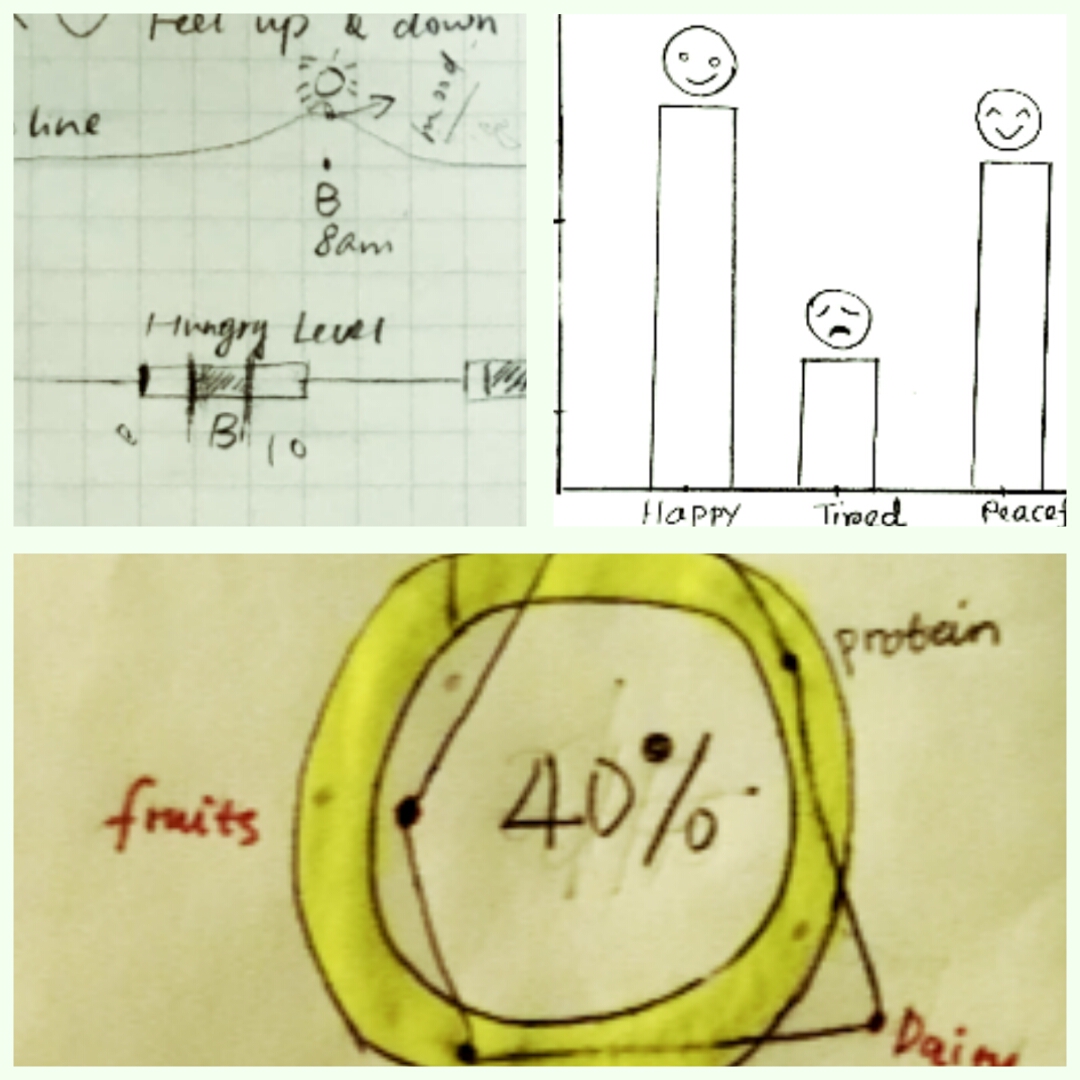 Feel up & down
line
mood
B
8am
Hungry Level
0
B
10
Happy
Tired
Peacef
protein
40%
fruits
Dairy